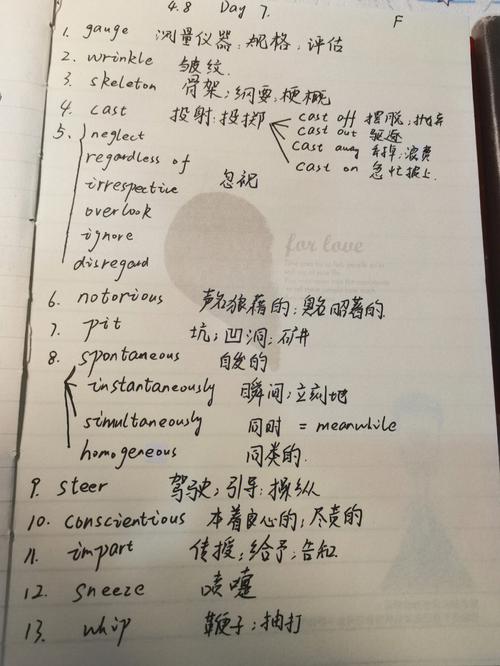 4.8 Day 7. F
1. gauge 测量仪器;规格,评估
2. wrinkle 皱纹.
3. skeleton 骨架;纲要,梗概
4. cast 投射;投掷 cast off 摆脱;抛弃
cast out 驱逐
cast away 丢掉;浪费
cast on 急忙披上.
5. neglect
regardless of
irrespective 忽视
overlook
ignore
disregard
for love
6. notorious 声名狼藉的;臭名昭著的
7. pit 坑;凹洞;矿井
8. spontaneous 自发的
instantaneously 瞬间;立刻地
simultaneously 同时 = meanwhile
homogeneous 同类的.
9. steer 驾驶;引导;操纵
10. conscientious 本着良心的;尽责的
11. impart 传授;给予;告知
12. sneeze 喷嚏
13. whip 鞭子;抽打